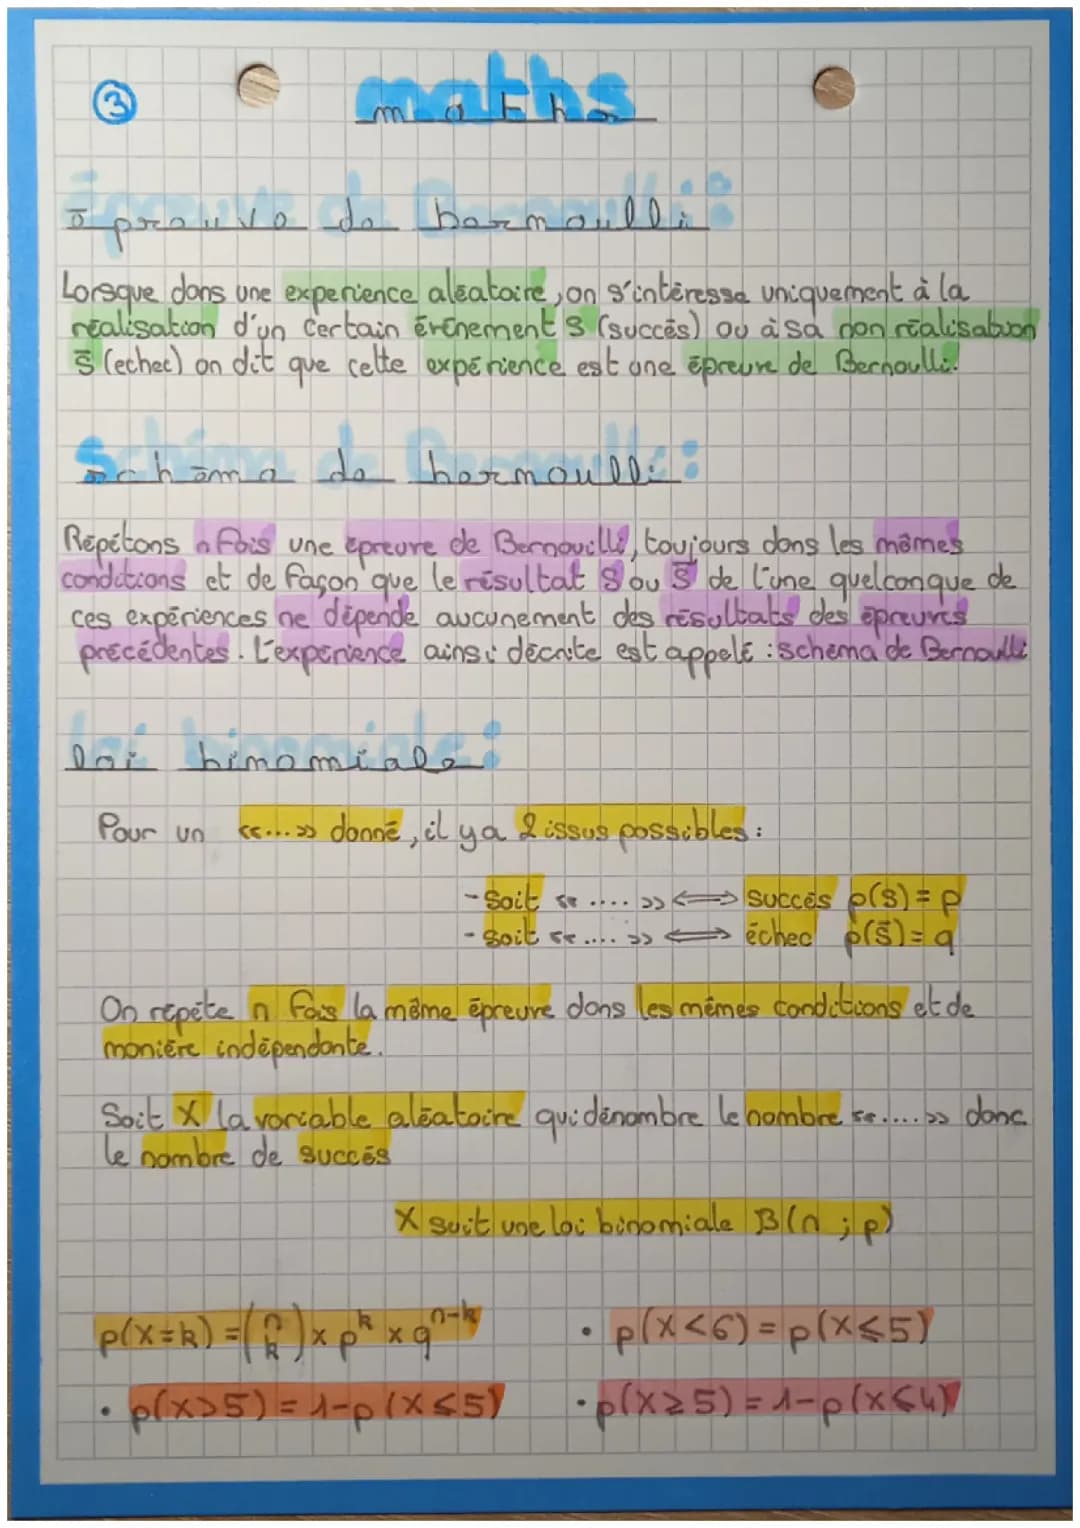 ③ maths
Épreuve de Bernoulli :
Lorsque dans une experience aléatoire, on s'intéresse uniquement à la
réalisation d'un certain événement S (succès) ou à sa non réalisation
S̄ (echec) on dit que cette expérience est une épreuve de Bernoulli.
Schéma de Bernoulli :
Répétons n fois une épreuve de Bernouilli, toujours dans les mêmes
conditions et de façon que le résultat S ou S̄ de l'une quelconque de
ces expériences ne dépende aucunement des résultats des épreuves
précédentes. L'expérience ainsi décrite est appelé : schema de Bernoulli
Loi binomiale :
Pour un «....» donné, il y a 2 issus possibles :
- Soit «....» ⟺ succès p(S) = p
- Soit «....» ⟺ échec p(S̄) = q
On répète n fois la même épreuve dans les mêmes conditions et de
manière indépendante.
Soit X la variable aléatoire qui dénombre le nombre «.....» donc
le nombre de succès
X suit une loi binomiale B(n ; p)
p(X=k) = (n k) × p^k × q^(n-k) • p(X<6) = p(X⩽5)
• p(X>5) = 1-p(X⩽5) • p(X≥5) = 1-p(X⩽4)